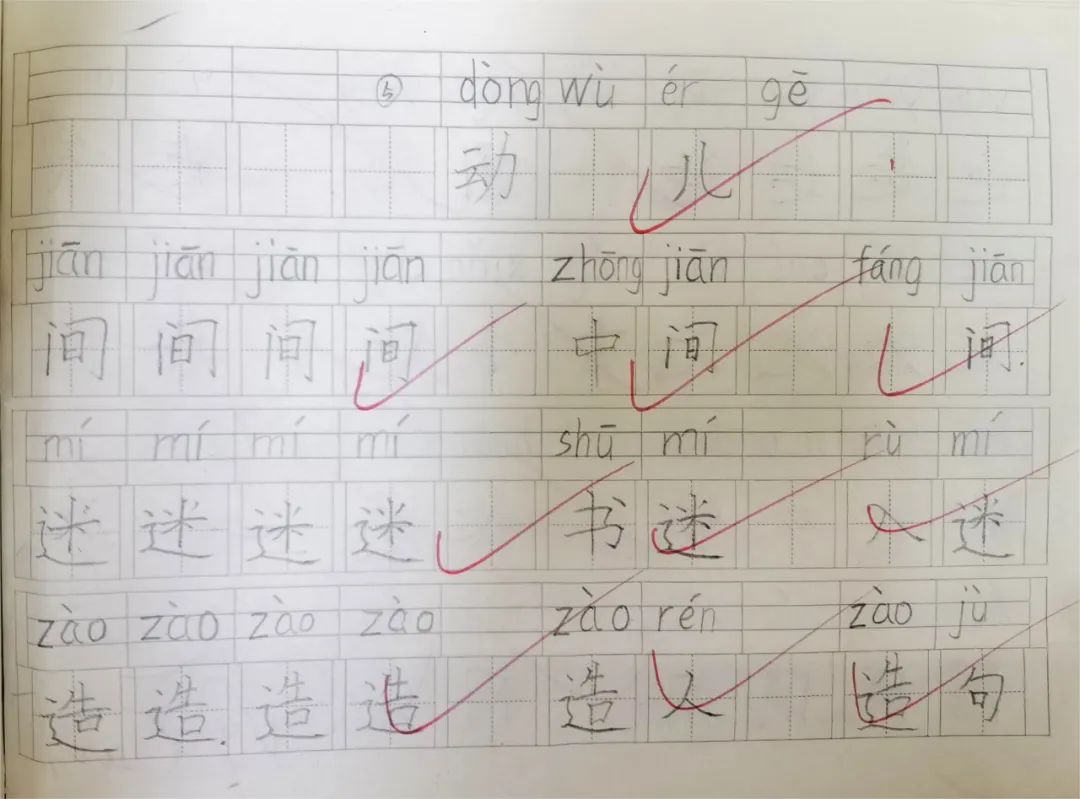 ⑤ dòng wù ér gē
动 儿
jiān jiān jiān jiān zhōng jiān fáng jiān
间 间 间 间 中 间 间.
mí mí mí mí shū mí rù mí
迷 迷 迷 迷 书 迷 入 迷
zào zào zào zào zào rén zào jù
造 造. 造 造 造 人 造 句